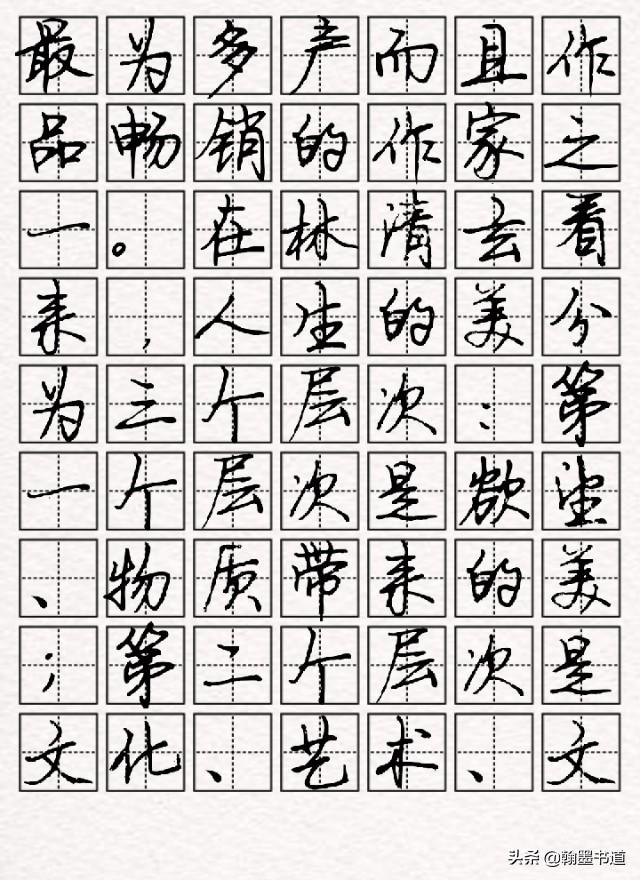 最为多产而且作
品畅销的作家之
一。在林清玄看
来，人生的美分
为三个层次：第
一个层次是欲望
、物质带来的美
；第二个层次是
文化、艺术、文
头条 @翰墨书道